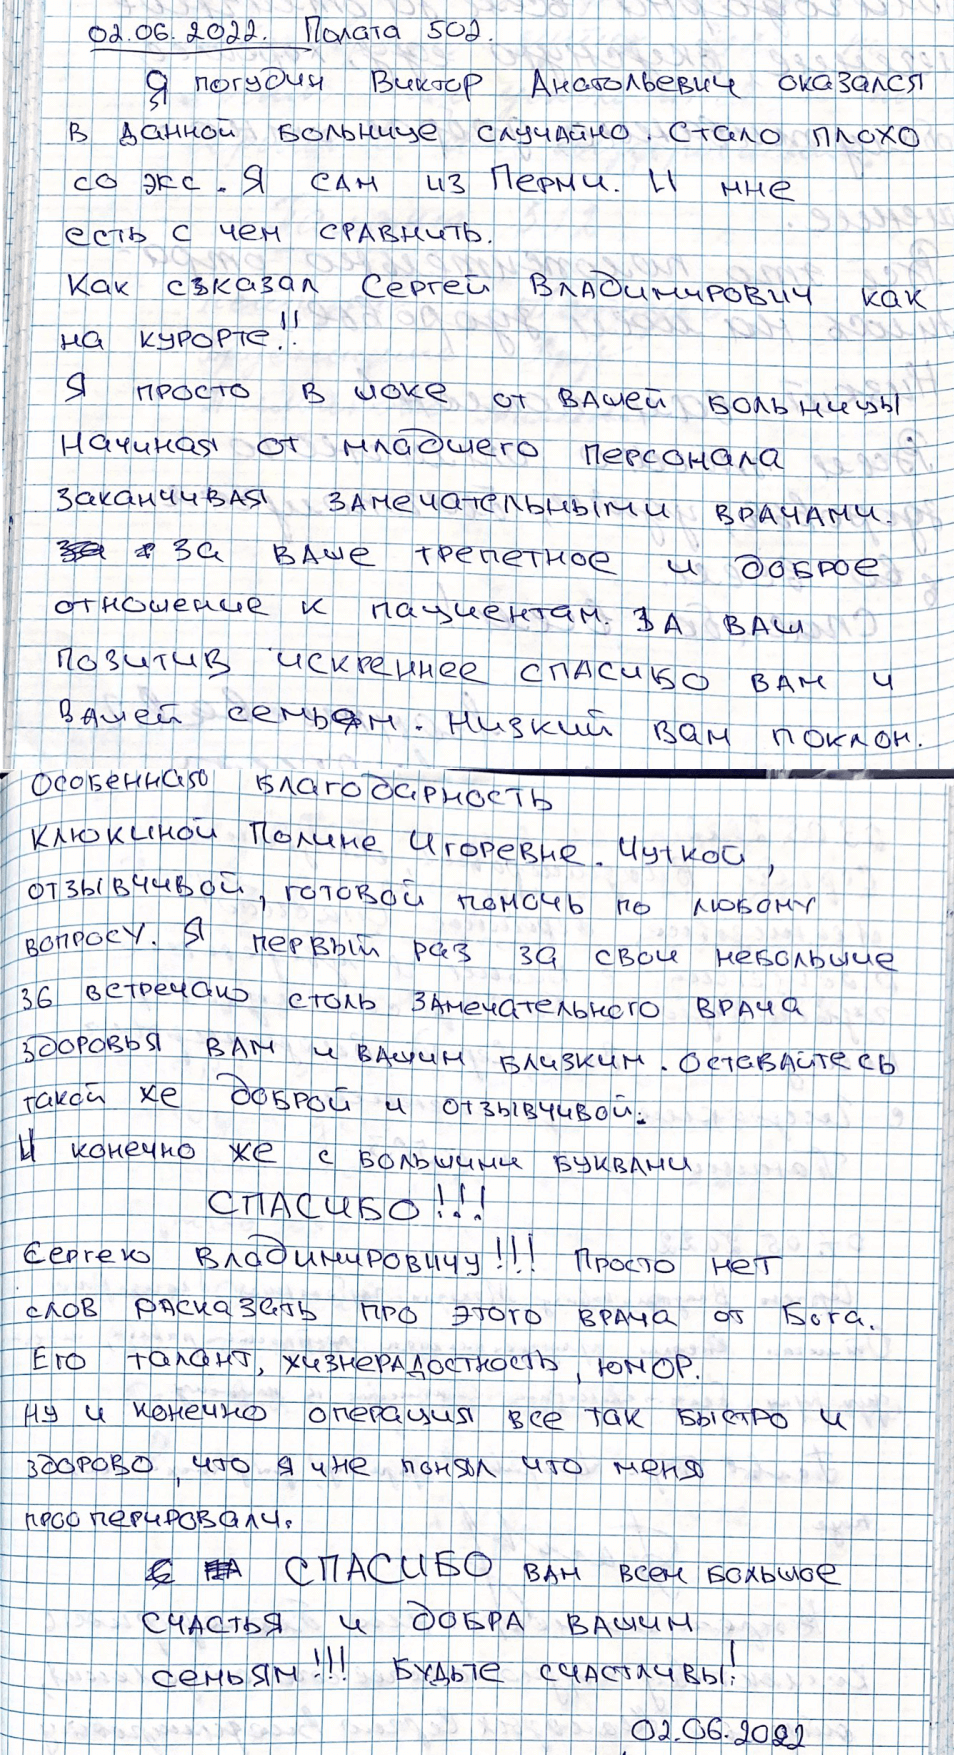 02.06.2022. Полата 502.
Я погудин Виктор Анатольевич оказался
в данной больнице случайно. Стало плохо
со экс. Я сам из Перми. И мне
есть с чем сравнить.
Как сказал Сергей Владимирович как
на курорте!!
Я просто в шоке от вашей больницы
Начиная от младшего персонала
заканчивая замечательными врачами.
За ваше трепетное и доброе
отношение к пациентам. За ваш
позитив искреннее спасибо вам и
вашей семьям. Низкий вам поклон.
Особенная благодарность
Клюкиной Полине Игоревне. Чуткой,
отзывчивой, готовой помочь по любому
вопросу. Я первый раз за свои небольшие
36 встречаю столь замечательного врача
здоровья вам и вашим близким. Оставайтесь
такой же доброй и отзывчивой.
И конечно же с большими буквами
СПАСИБО!!!
Сергею Владимировичу!!! Просто нет
слов расказать про этого врача от Бога.
Его талант, жизнерадостность, юмор.
Ну и конечно операция все так быстро и
здорово, что я и не понял что меня
прооперировали.
СПАСИБО вам всем большое
счастья и добра вашим
семьям!!! Будьте счастливы!
02.06.2022